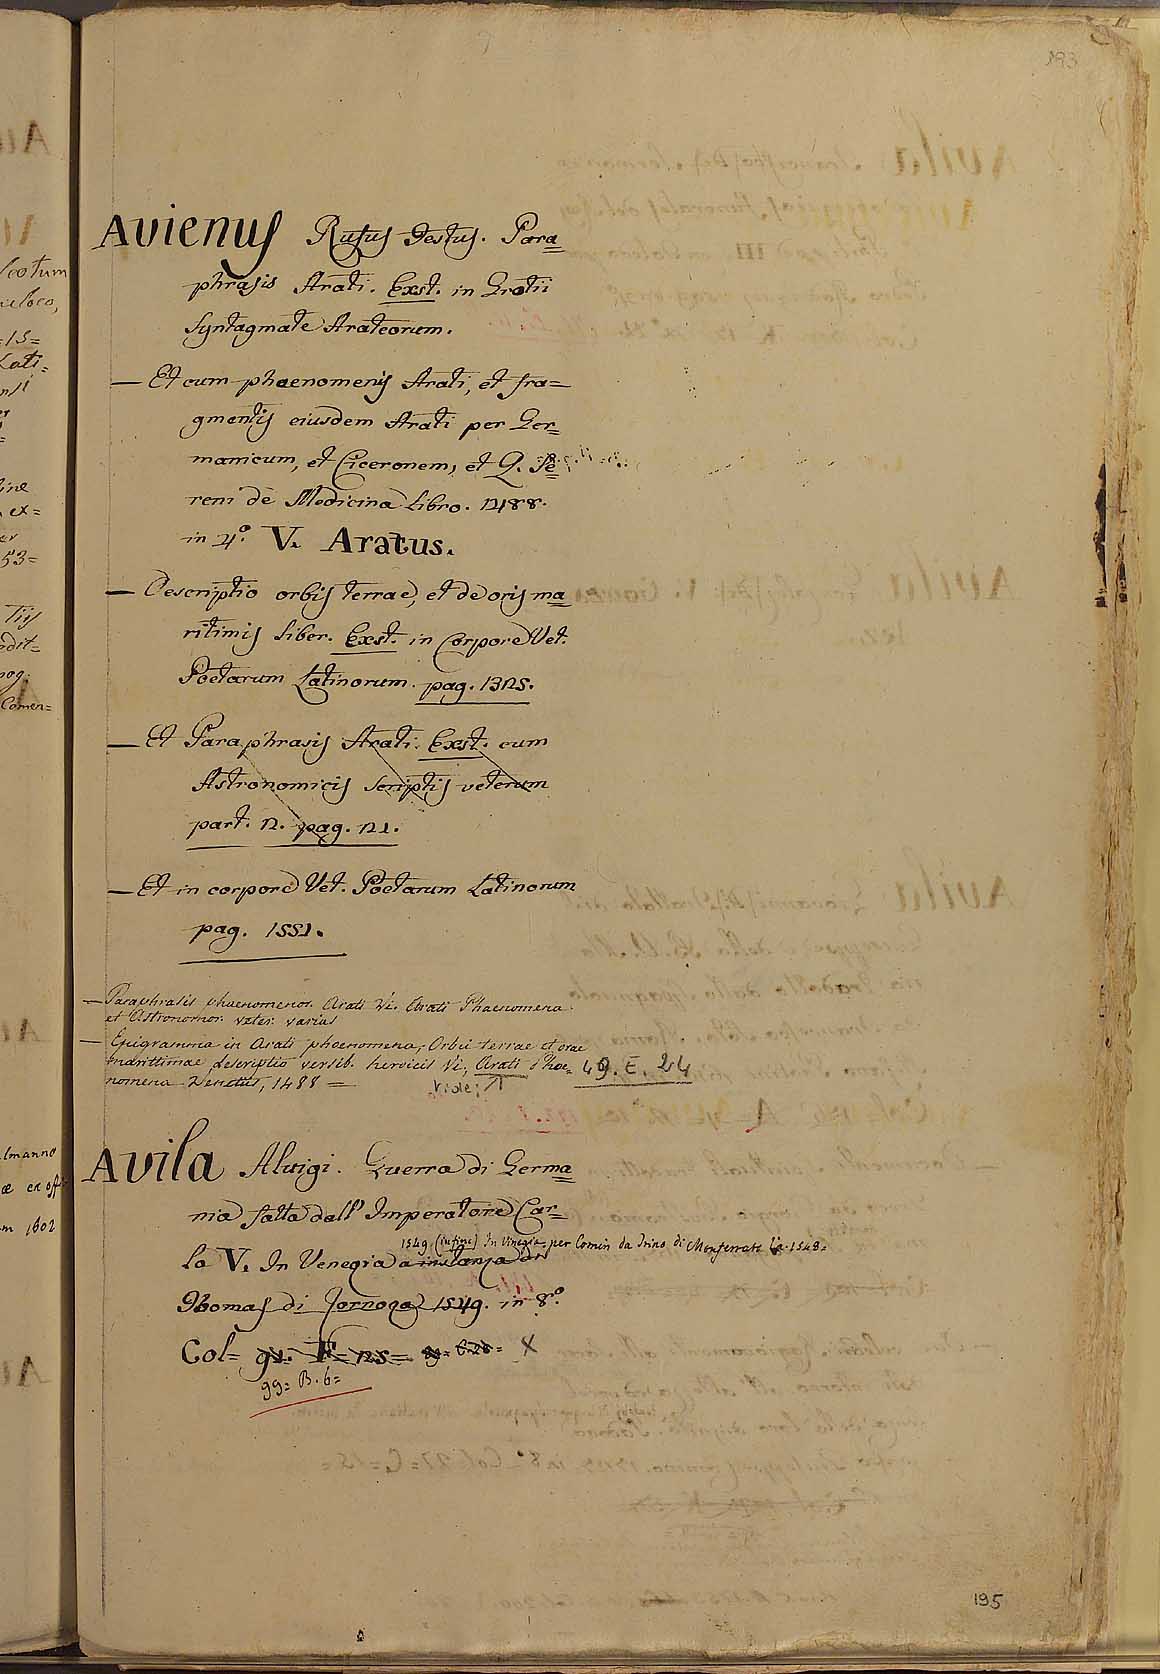 193
Avienus Rufus Festus. Para=
phrasis Arati. Exst. in Grotii
Syntagmate Arateorum.
— Et cum phaenomenis Arati, et fra=
gmentis eiusdem Arati per Ger=
manicum, et Ciceronem, et Q. Se=
reni de Medicina Libro. 1488.
in 4.º V. Aratus.
— Descriptio orbis terrae, et de oris ma=
ritimis liber. Exst. in Corpore Vet.
Poetarum Latinorum. pag. 1325.
— Et Paraphrasis Arati. Exst. cum
Astronomicis scriptis veterum
part. 2. pag. 21.
— Et in corpore Vet. Poetarum Latinorum
pag. 1551.
— Paraphrasis phaenomenor. Arati Vi. Arati Phaenomena
et Astronomor. veter. varius
— Epigramma in Arati phaenomena; Orbis terrae et orae
marittimae descriptio versib. heroicis Vi; Arati Phoe= 49. E. 24
nomena Venetiis, 1488 =
Vide;
Avila Aluigi. Guerra di Germa=
nia fatta dall' Imperatore Car=
1549 (in fine) In Vinegia per Comin da Trino di Monferrato 1548=
lo V. In Venegia a instanza di
Thomas di Zornoza 1549. in 8.º
Col= F= 25= X
99= B. 6=
195
lectum
=15=
Lati=
ine
ex=
53=
Tijs
edit=
nog.
Comen=
lmanno
æ ex off
m 1602
Avila